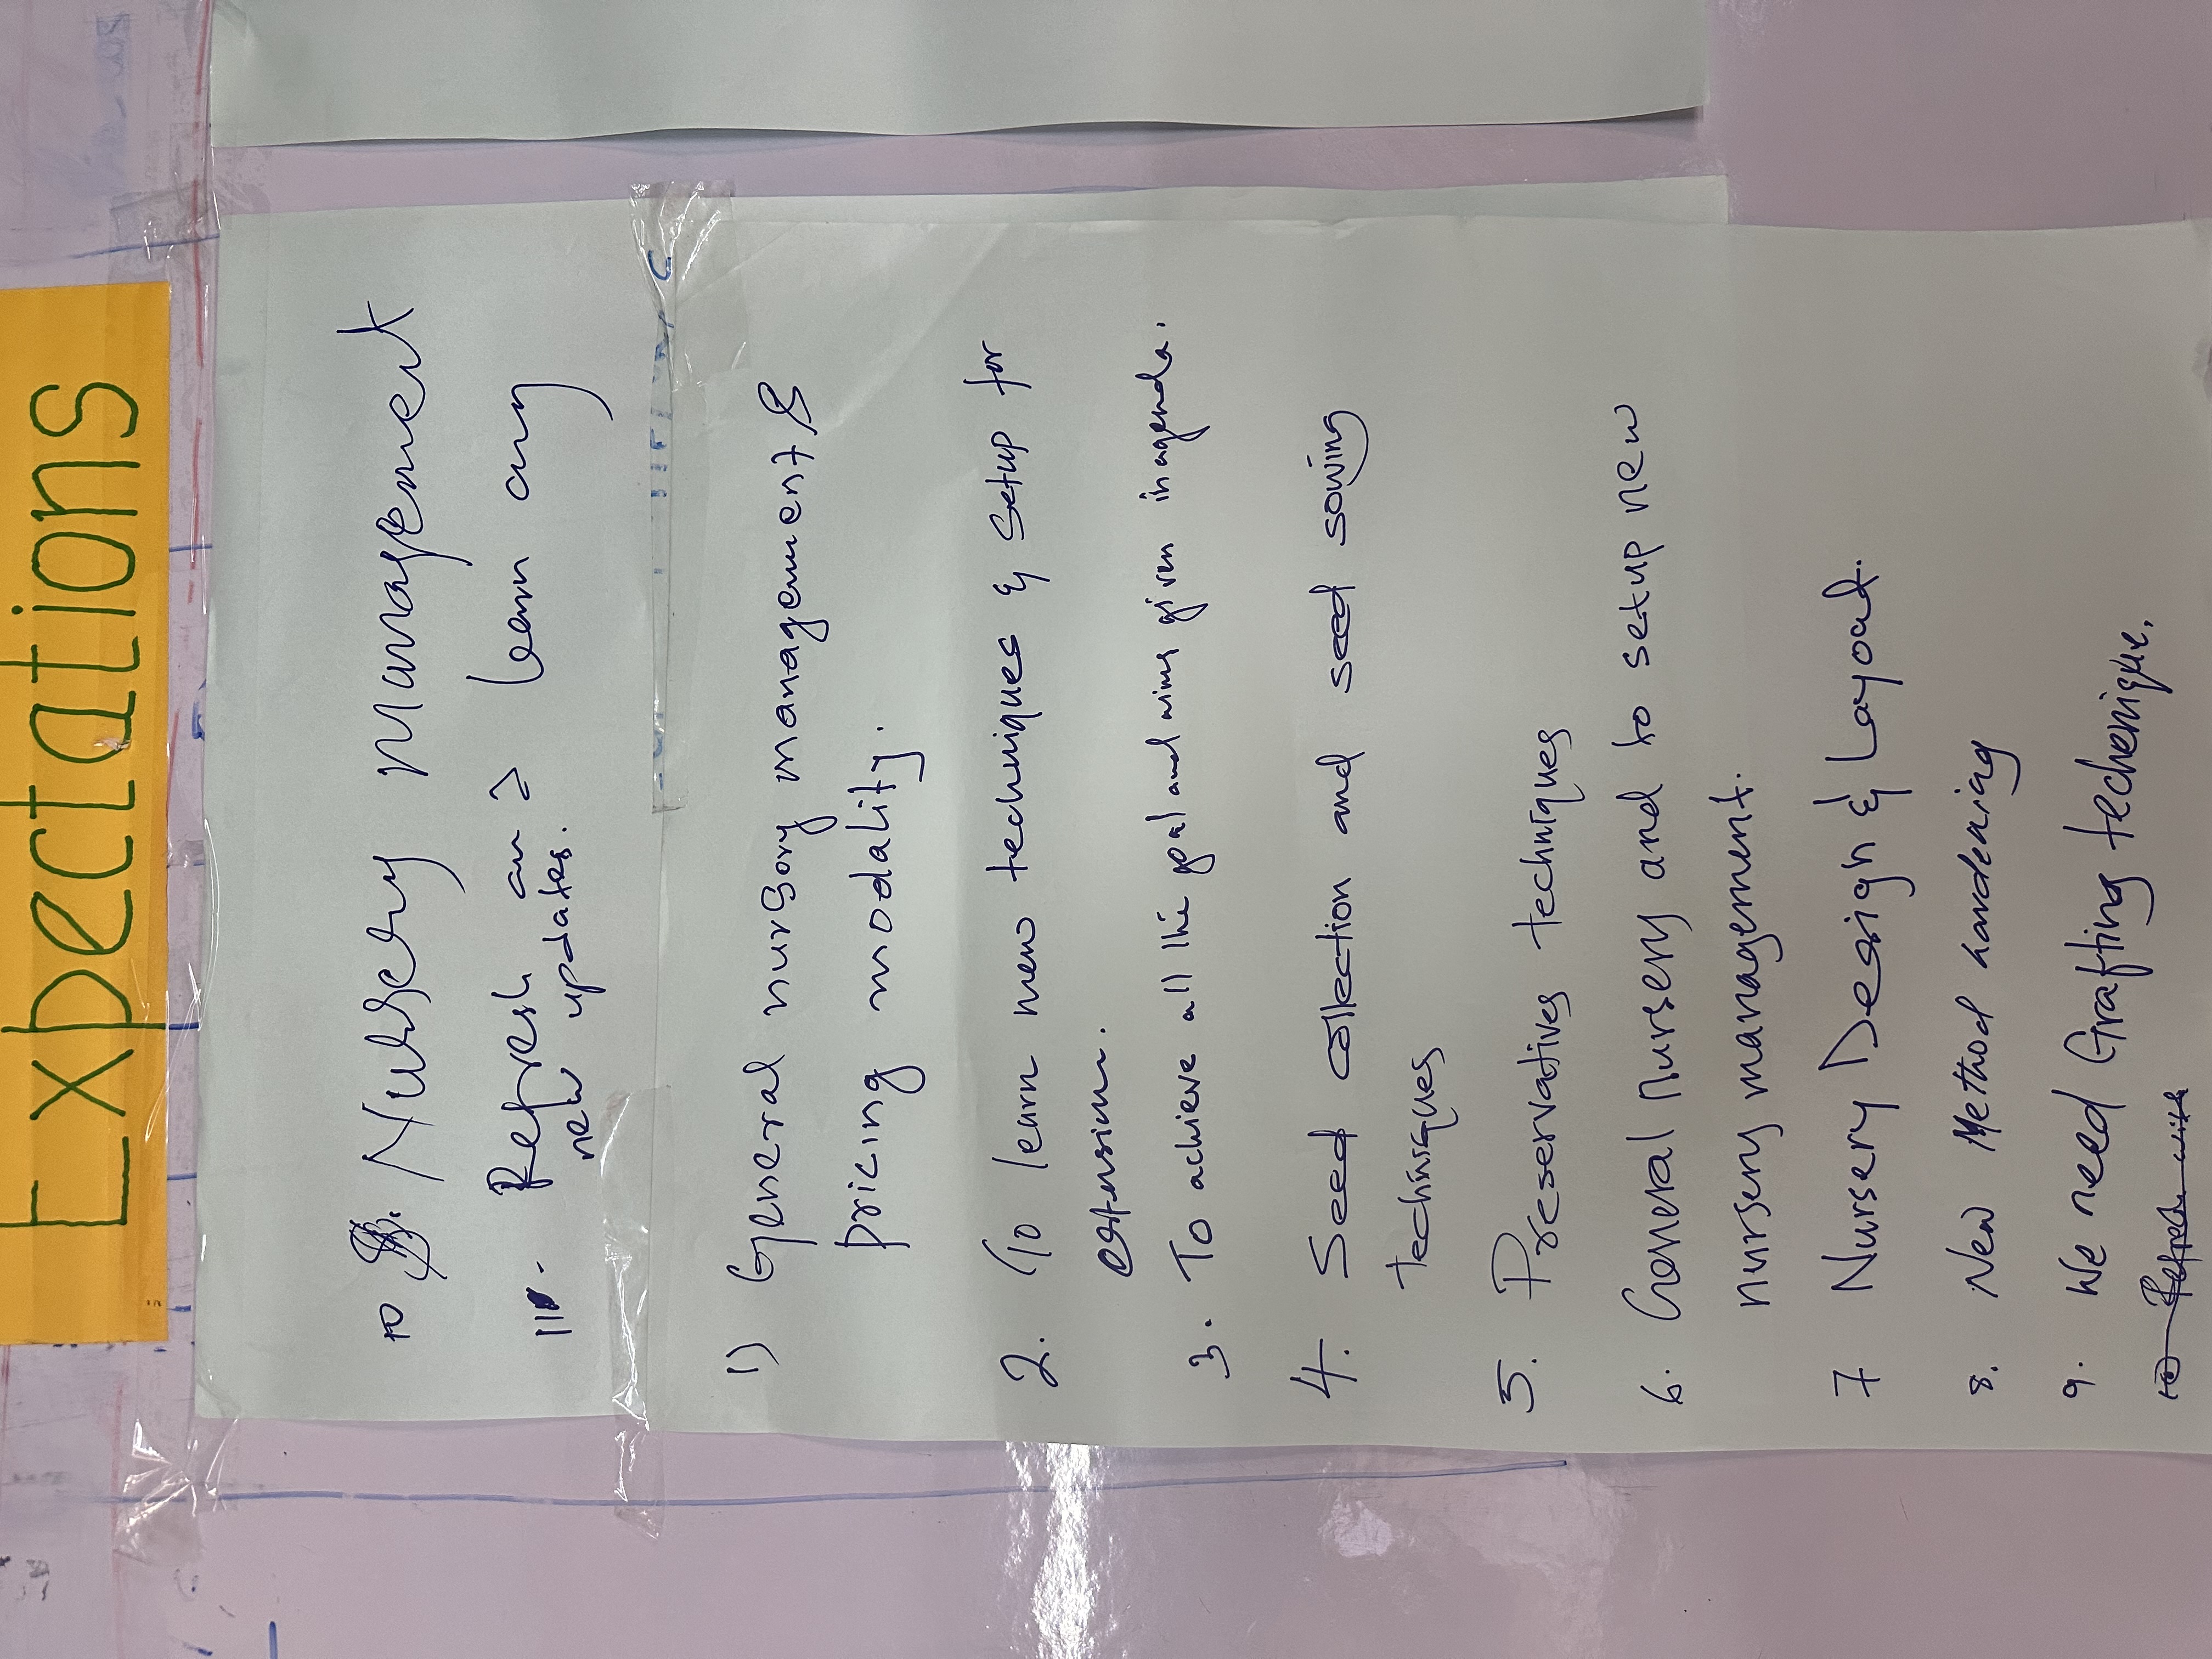 Expectations
10 . Nursery management
11. Refresh an > learn any
new updates.
1) General nursory management &
pricing modality.
2. To learn new techniques & Setup for
extension.
3. To achieve all the goal and aims given in agenda.
4. Seed collection and seed sowing
techniques
5. Preservatives techniques
6. General Nursery and to setup new
nursery management.
7 Nursery Design & Layout.
8. New Method hardening
9. We need Grafting techenique.
10 Refresh with